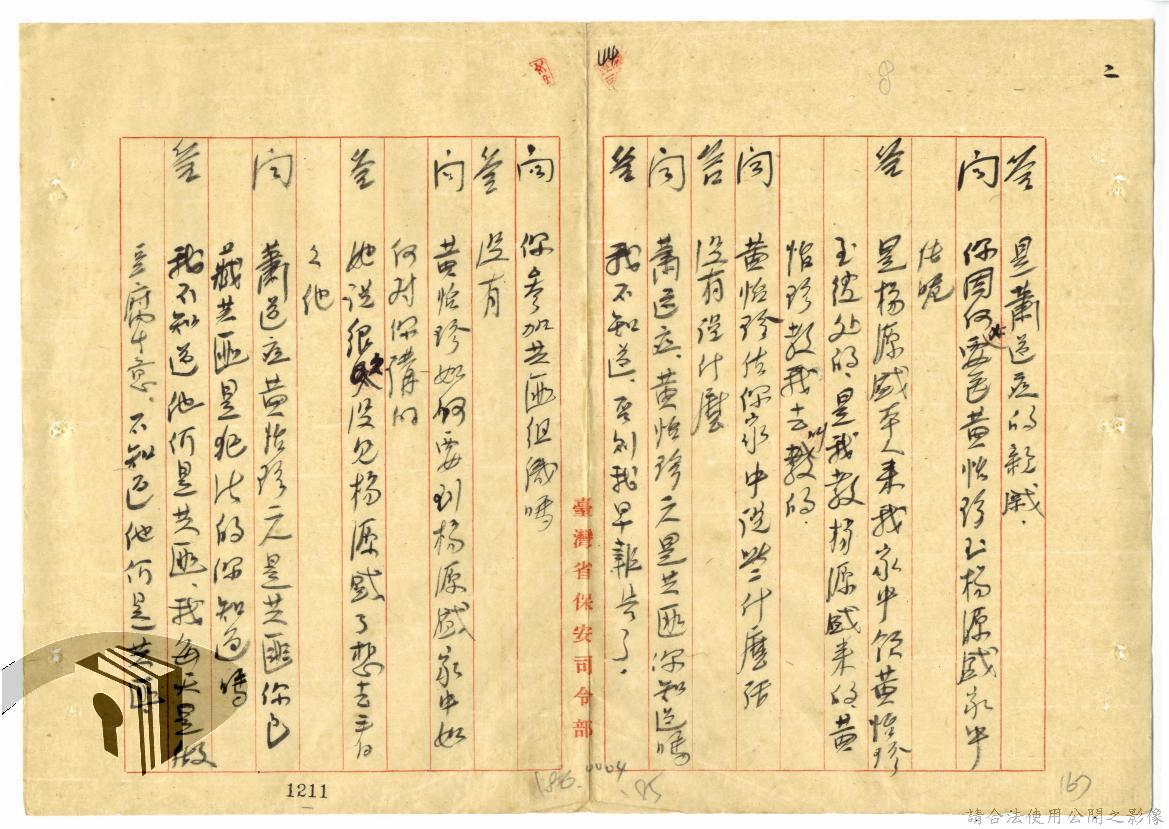 二
8
44
答　是蕭道應的親戚．
問　你因何要民黃怡珍上楊源盛家中
住呢
答　是楊源盛本人來我家中領黃怡珍
至彼处的．是我教楊源盛來的．黃
怡珍教我去叫的．
問　黃怡珍住你家中說些什麼話
答　沒有說什麼
問　蕭道应、黃怡珍元是共匪你知道嗎
答　我不知道．否則我早報告了．
臺灣省保安司令部
問　你參加共匪組織嗎
答　沒有
問　黃怡珍如何要到楊源盛家中如
何对你講的
答　她說很久沒見楊源盛了想去看
之他
問　蕭道应黃怡珍元是共匪你
藏共匪是犯法的你知道嗎
答　我不知道他们是共匪、我每天是做
豆腐生意．不知道他们是共匪
1211
186.
0004
95
167
請合法使用公開之影像